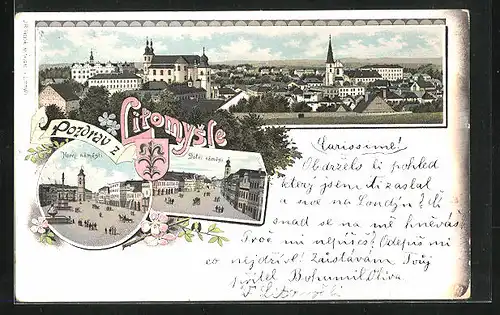 Pozdrav z
Litomyšle
Horní náměstí.
Dolní náměstí.
Carissime!
Obdržels li pohled
který jsem ti zaslal
a
snad se na mě hněváš
Proč mi nepíšeš? Odepiš mi
co nejdříve! Zůstávám Tvůj
přítel Bohumil Oliva